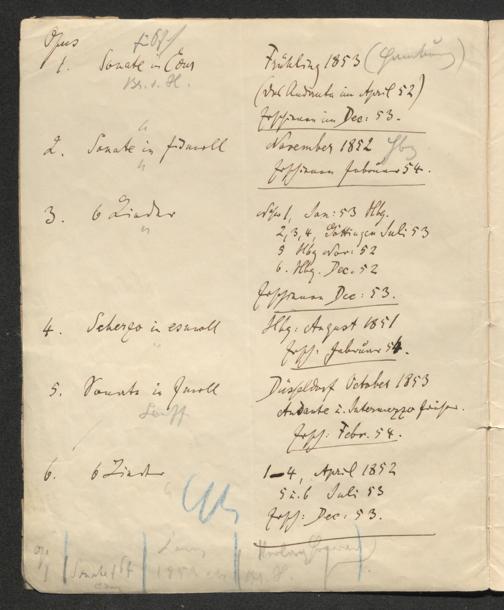 Opus
1. Sonate in Cdur Frühling 1853 (Hamburg)
Br. & H. (Das Andante im April 52)
Erschienen im Dec: 53.
2. Sonate in fismoll November 1852 Hbg
Erschienen Februar 54.
3. 6 Lieder No 1, Jan: 53 Hbg.
2, 3, 4, Göttingen Juli 53
5 Hbg Nov: 52
6. Hbg. Dec. 52
Erschienen Dec: 53.
4. Scherzo in esmoll Hbg: August 1851
Ersch: Februar 54.
5. Sonate in Fmoll Düsseldorf October 1853
Senff Andante u. Intermezzo früher.
Ersch: Febr. 54.
6. 6 Lieder 1–4, April 1852
5 u. 6 Juli 53
Ersch: Dec: 53.
op
1 Sonate